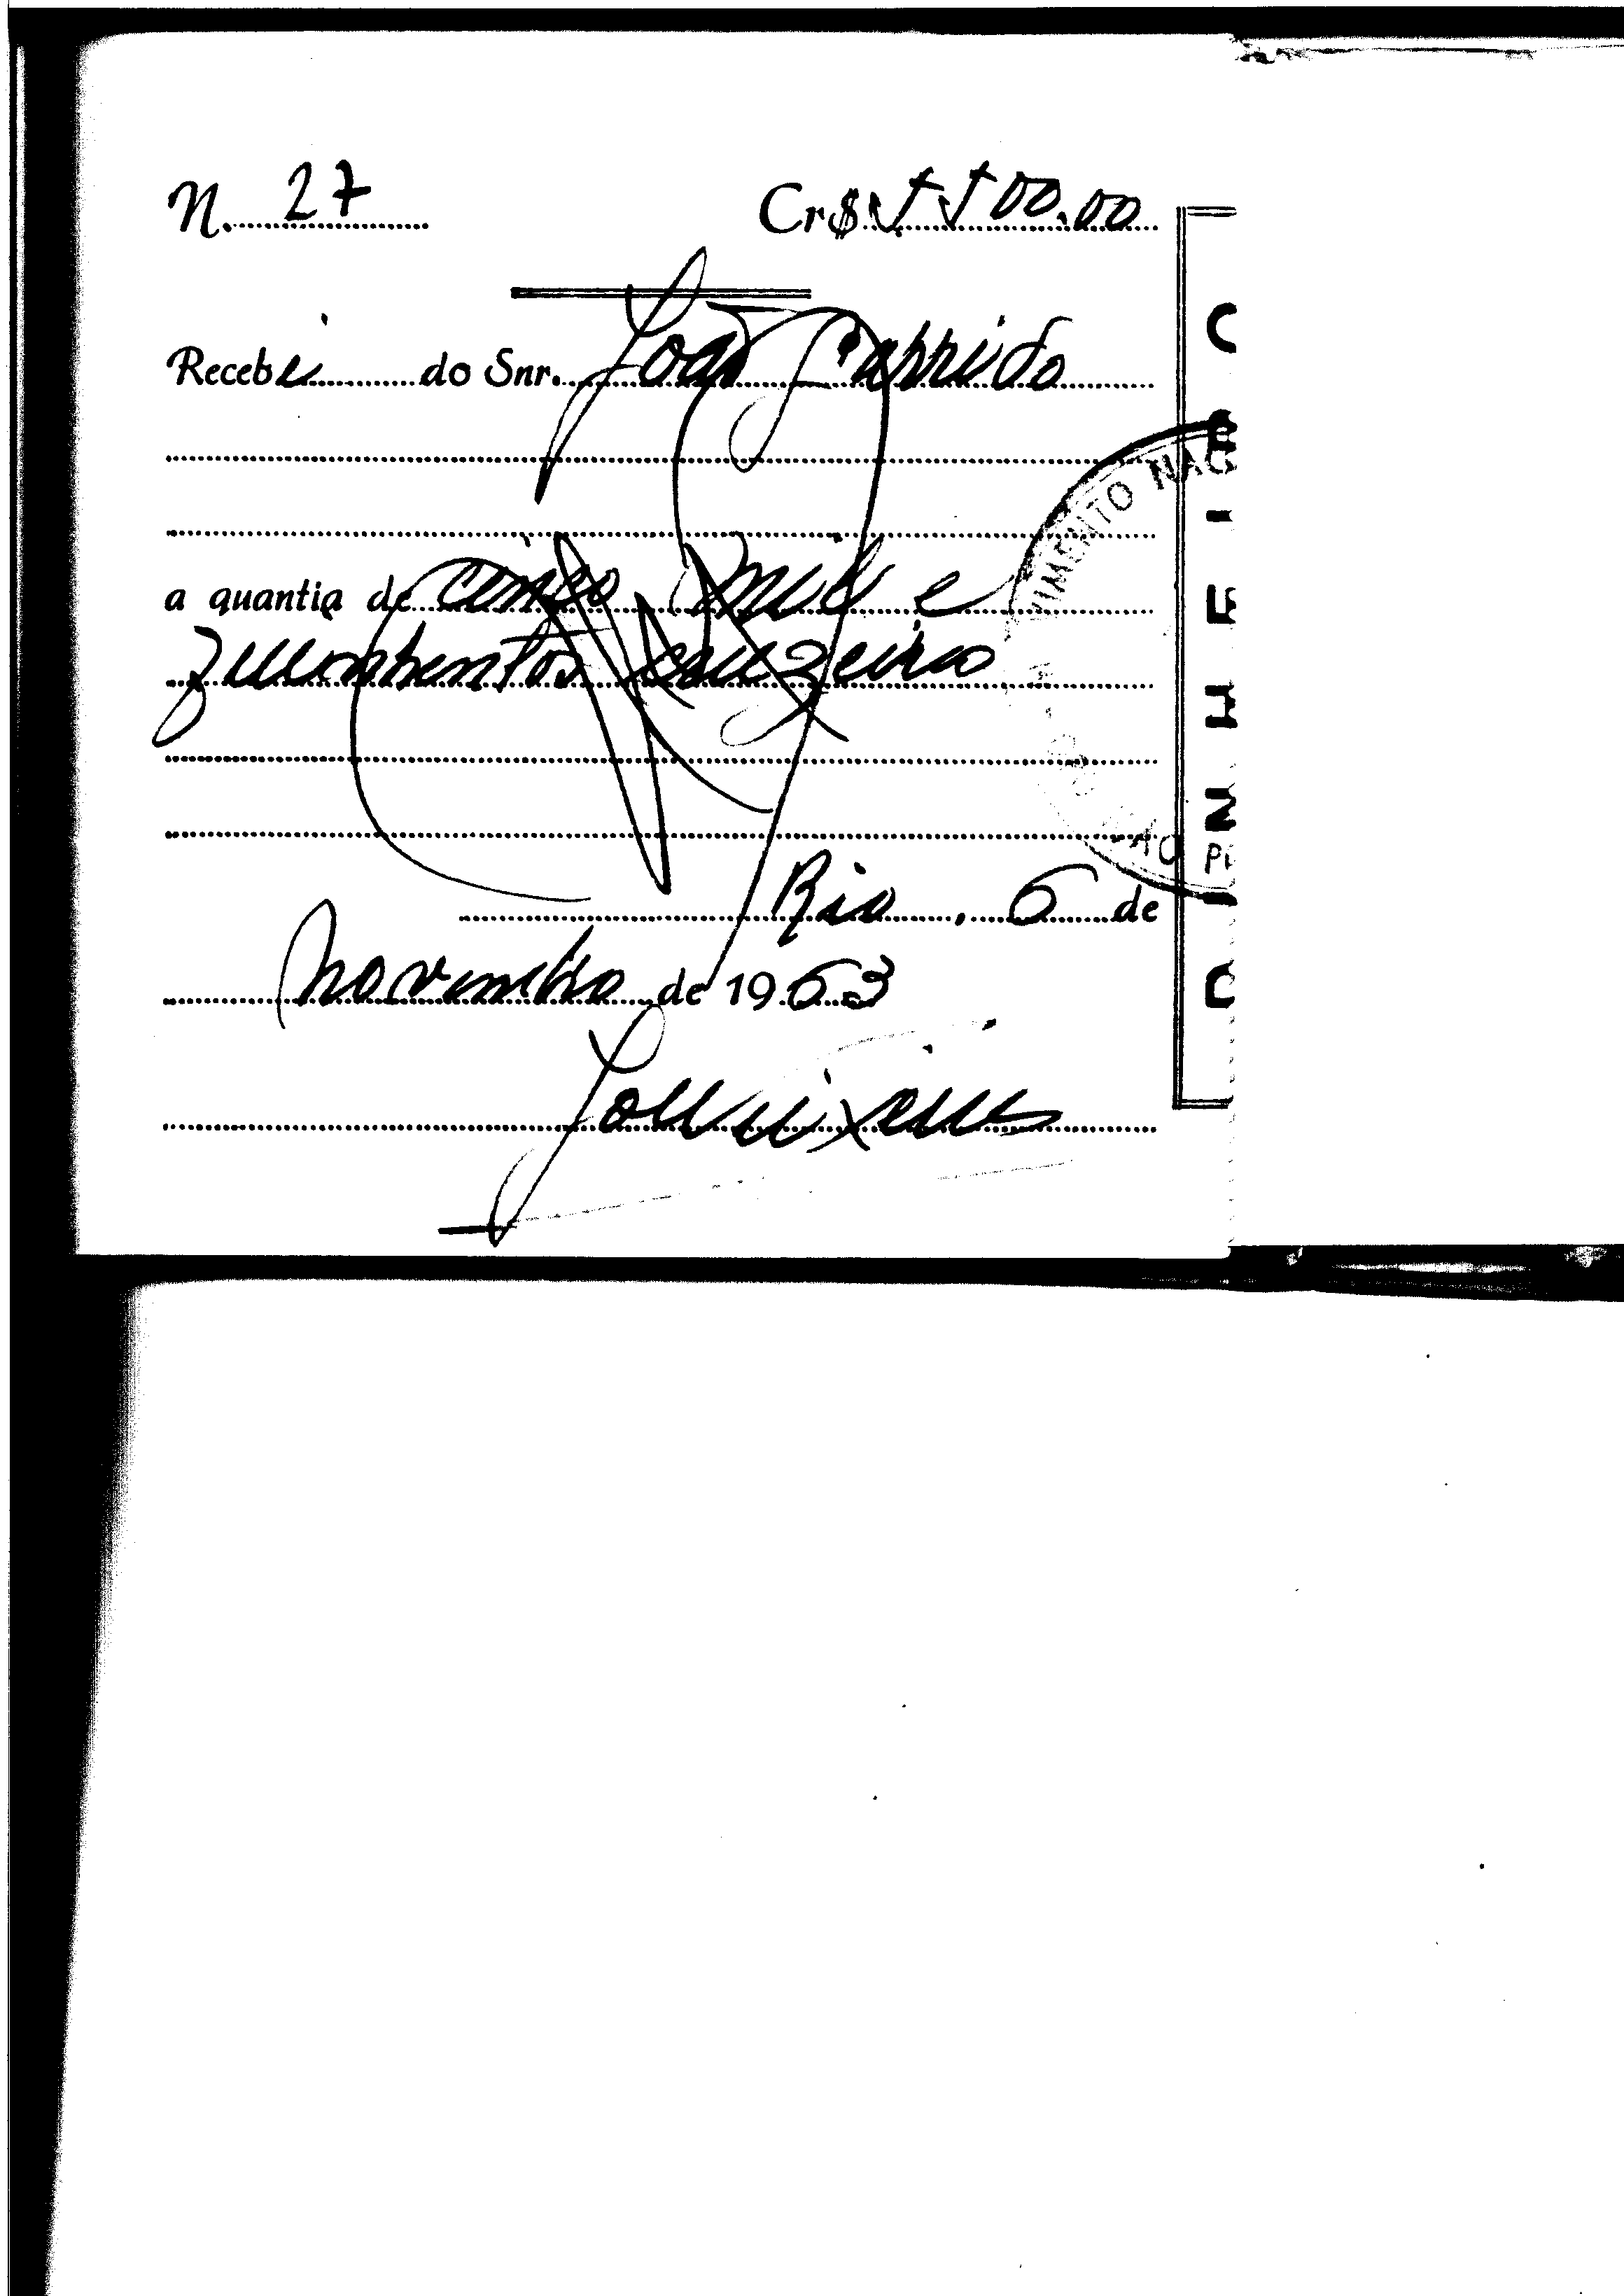 N. 27 Cr$ 5.500.00
Recebi do Snr. João Garrido
a quantia de cinco mil e
quinhentos cruzeiros
Rio, 6 de
novembro de 1963
IMENTO NAC